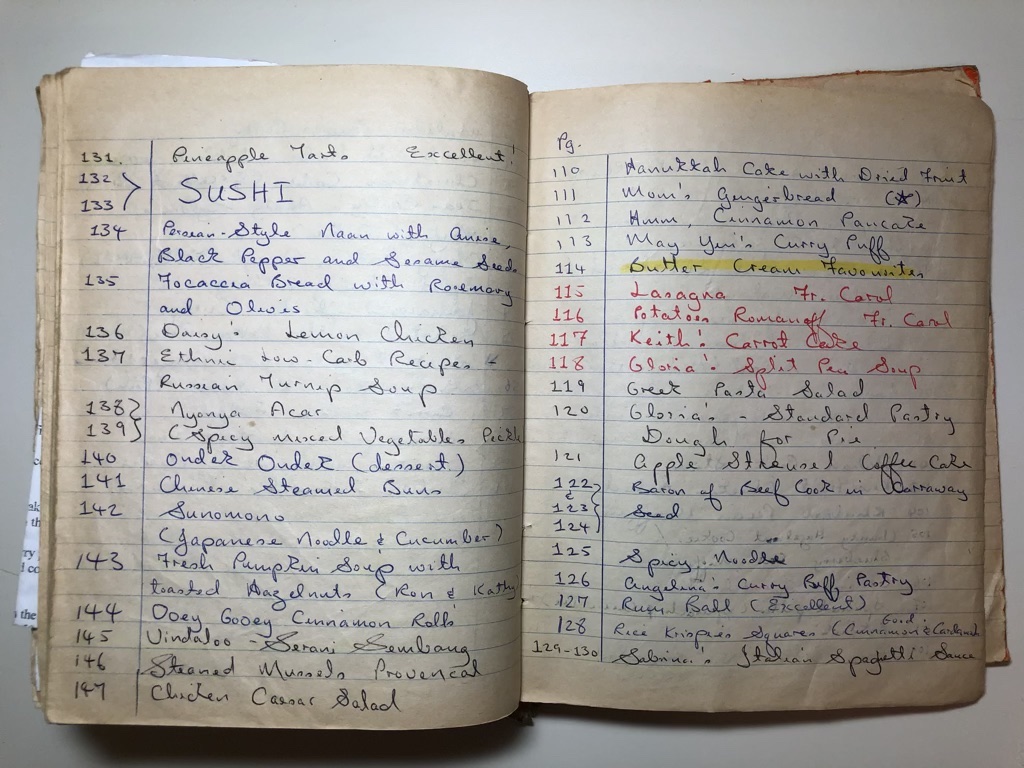 131. Pineapple Tarts Excellent!
132
133 SUSHI
134 Persian-Style Naan with Anise,
Black Pepper and Sesame Seeds
135 Focaccia Bread with Rosemary
and Olives
136 Daisy's Lemon Chicken
137 Ethnic Low-Carb Recipes -
Russian Turnip Soup
138 Nyonya Acar
139 (Spicy Mixed Vegetables Pickle
140 Onder Onder (dessert)
141 Chinese Steamed Buns
142 Sunomono
(Japanese Noodle & Cucumber)
143 Fresh Pumpkin Soup with
toasted Hazelnuts (Ron & Kathy
144 Ooey Gooey Cinnamon Rolls
145 Vindaloo - Serani Sembang
146 Steamed Mussels Provencal
147 Chicken Caesar Salad
Pg.
110 Hanukkah Cake with Dried Fruit
111 Mom's Gingerbread (★)
112 Hmm, Cinnamon Pancake
113 May Yin's Curry Puff
114 Butter Cream Favourites
115 Lasagna Fr. Carol
116 Potatoes Romanoff Fr. Carol
117 Keith's Carrot Cake
118 Gloria's Split Pea Soup
119 Greek Pasta Salad
120 Gloria's - Standard Pastry
Dough for Pie
121 Apple Streusel Coffee Cake
122 Baron of Beef Cook in Carraway
& 123 Seed
124
125 Spicy Noodle
126 Angelina's Curry Puff Pastry
127 Rum Ball (Excellent)
128 Rice Krispies Squares (Cinnamon & Cardamom
Good
129-130 Sabrina's Italian Spaghetti Sauce